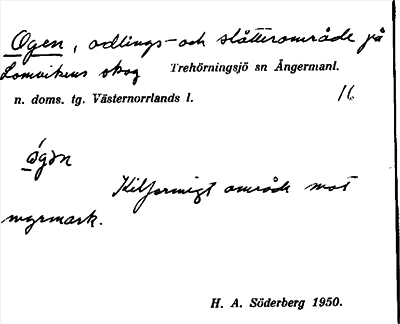 Ogen, odlings- och slåtterområde på
Lomvikens skog Trehörningsjö sn Ångermanl.
n. doms. tg. Västernorrlands l. 16
ó̱gɜn
Kilformigt område mot
myrmark.
H. A. Söderberg 1950.